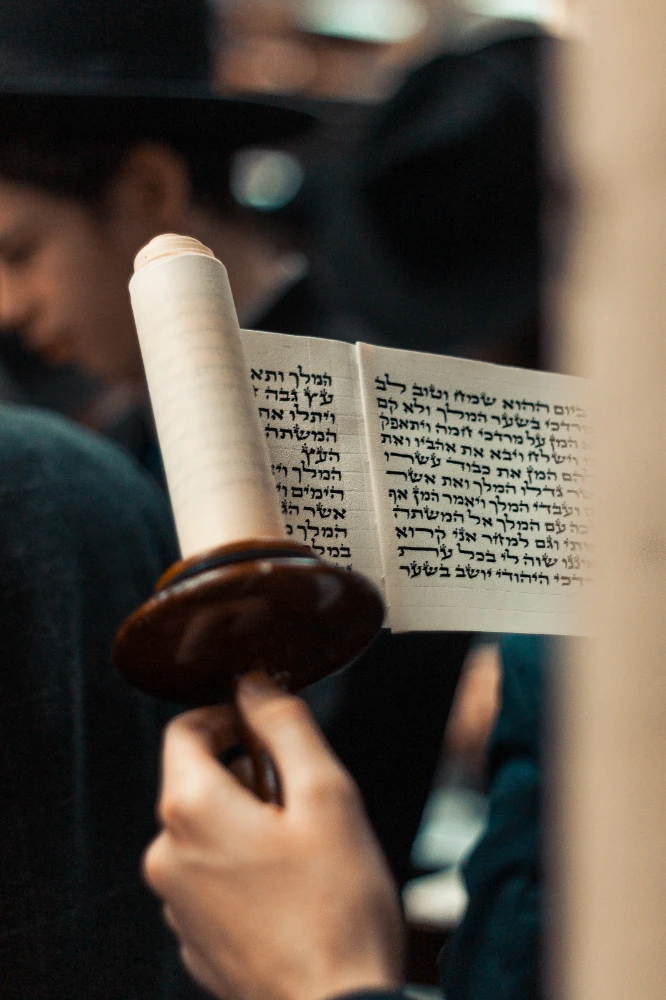 ביום ההוא שמח וטוב לב
מרדכי בשער המלך ולא קם
המן על מרדכי חמה ויתאפק
וישלח ויבא את אהביו ואת
המן את כבוד עשרו
גדלו המלך ואת אשר
ועבדי המלך ויאמר המן אף
עם המלך אל המשתה
וגם למחר אני קרוא
שוה לי בכל עת
היהודי יושב בשער
המלך
עץ גבה
ויתלו
המשתה
העץ
המלך
הימים
אשר
המלך